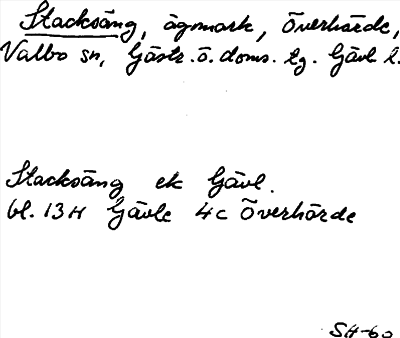 Stacksäng, ägomark, Överhärde,
Valbo sn, Gästr. ö. doms. tg. Gävl. l.
Stacksäng ek Gävl.
bl. 13H Gävle 4c Överhärde
SH-60